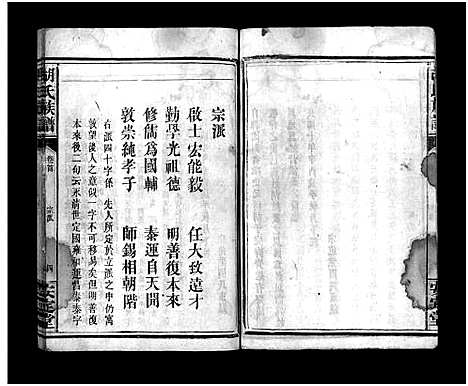 宗派
啟士宏能毅 任大致遠才
勤學光祖德 明善復本來
修儒為國輔 泰運自天開
敦崇純孝子 師錫相朝階
右派四十字係 先人所定於立派之中仍寓
敦望後人之意似一字不可移易矣但明善復
本來後二句云永清世定國雍和運昌泰泰字
胡氏族譜
卷首
宗派
四
安定堂